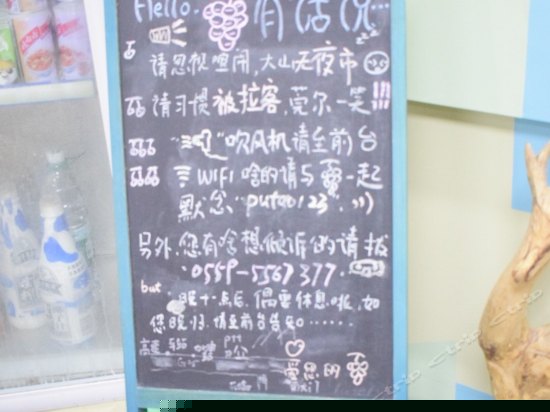 Hello. 有话说...
请忽视喧闹,大山无夜市
请习惯被拉客,莞尔一笑!!!
"吹风机请至前台
WIFI啥的请与一起
默念"putao123".
另外,您有啥想倾诉的请拨
0559-5567377.
but 晚十点后,偶要休息啦,如
您晚归,请至前台告知......